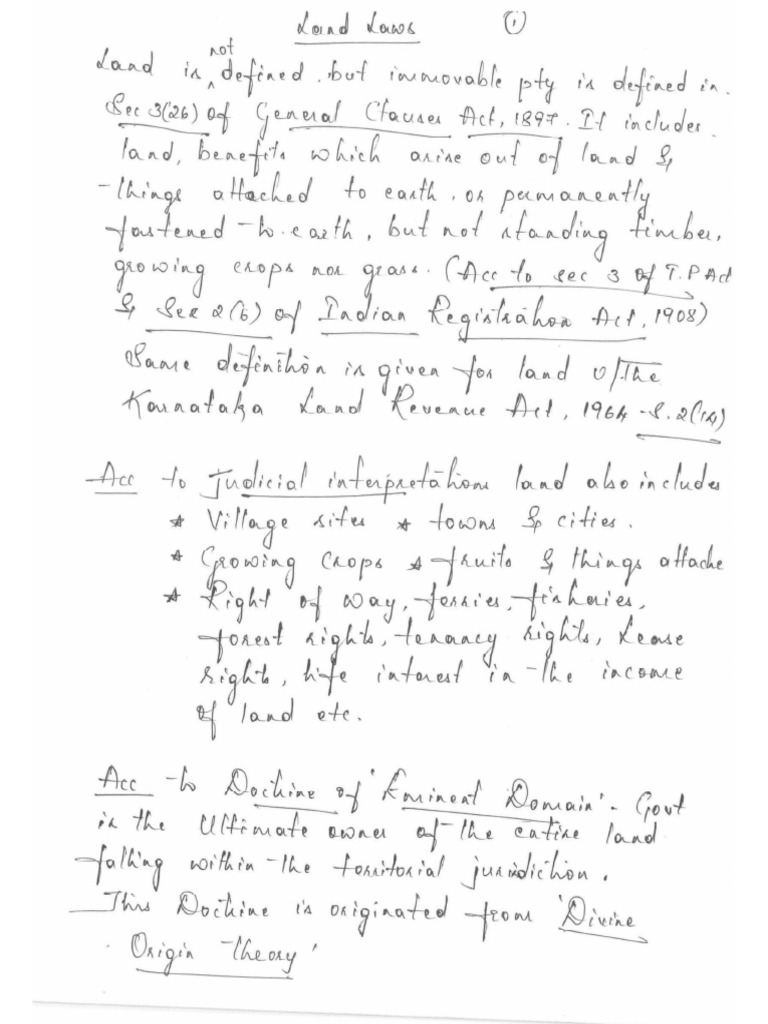 Land Laws ①
Land is not defined, but immovable pty is defined in
Sec 3(26) of General Clauses Act, 1897. It includes
land, benefits which arise out of land &
things attached to earth, or permanently
fastened to earth, but not standing timber,
growing crops nor grass. (Acc to sec 3 of T.P Act
& Sec 2(6) of Indian Registration Act, 1908)
Same definition is given for land u/the
Karnataka Land Revenue Act, 1964 - S.2(14)
Acc to Judicial interpretations land also includes
* Village sites * towns & cities.
* Growing crops * fruits & things attache
* Right of way, ferries, fisheries,
forest rights, tenancy rights, Lease
rights, life interest in the income
of land etc.
Acc to Doctrine of 'Eminent Domain' - Govt
is the Ultimate owner of the entire land
falling within the territorial jurisdiction.
This Doctrine is originated from 'Divine
Origin Theory'